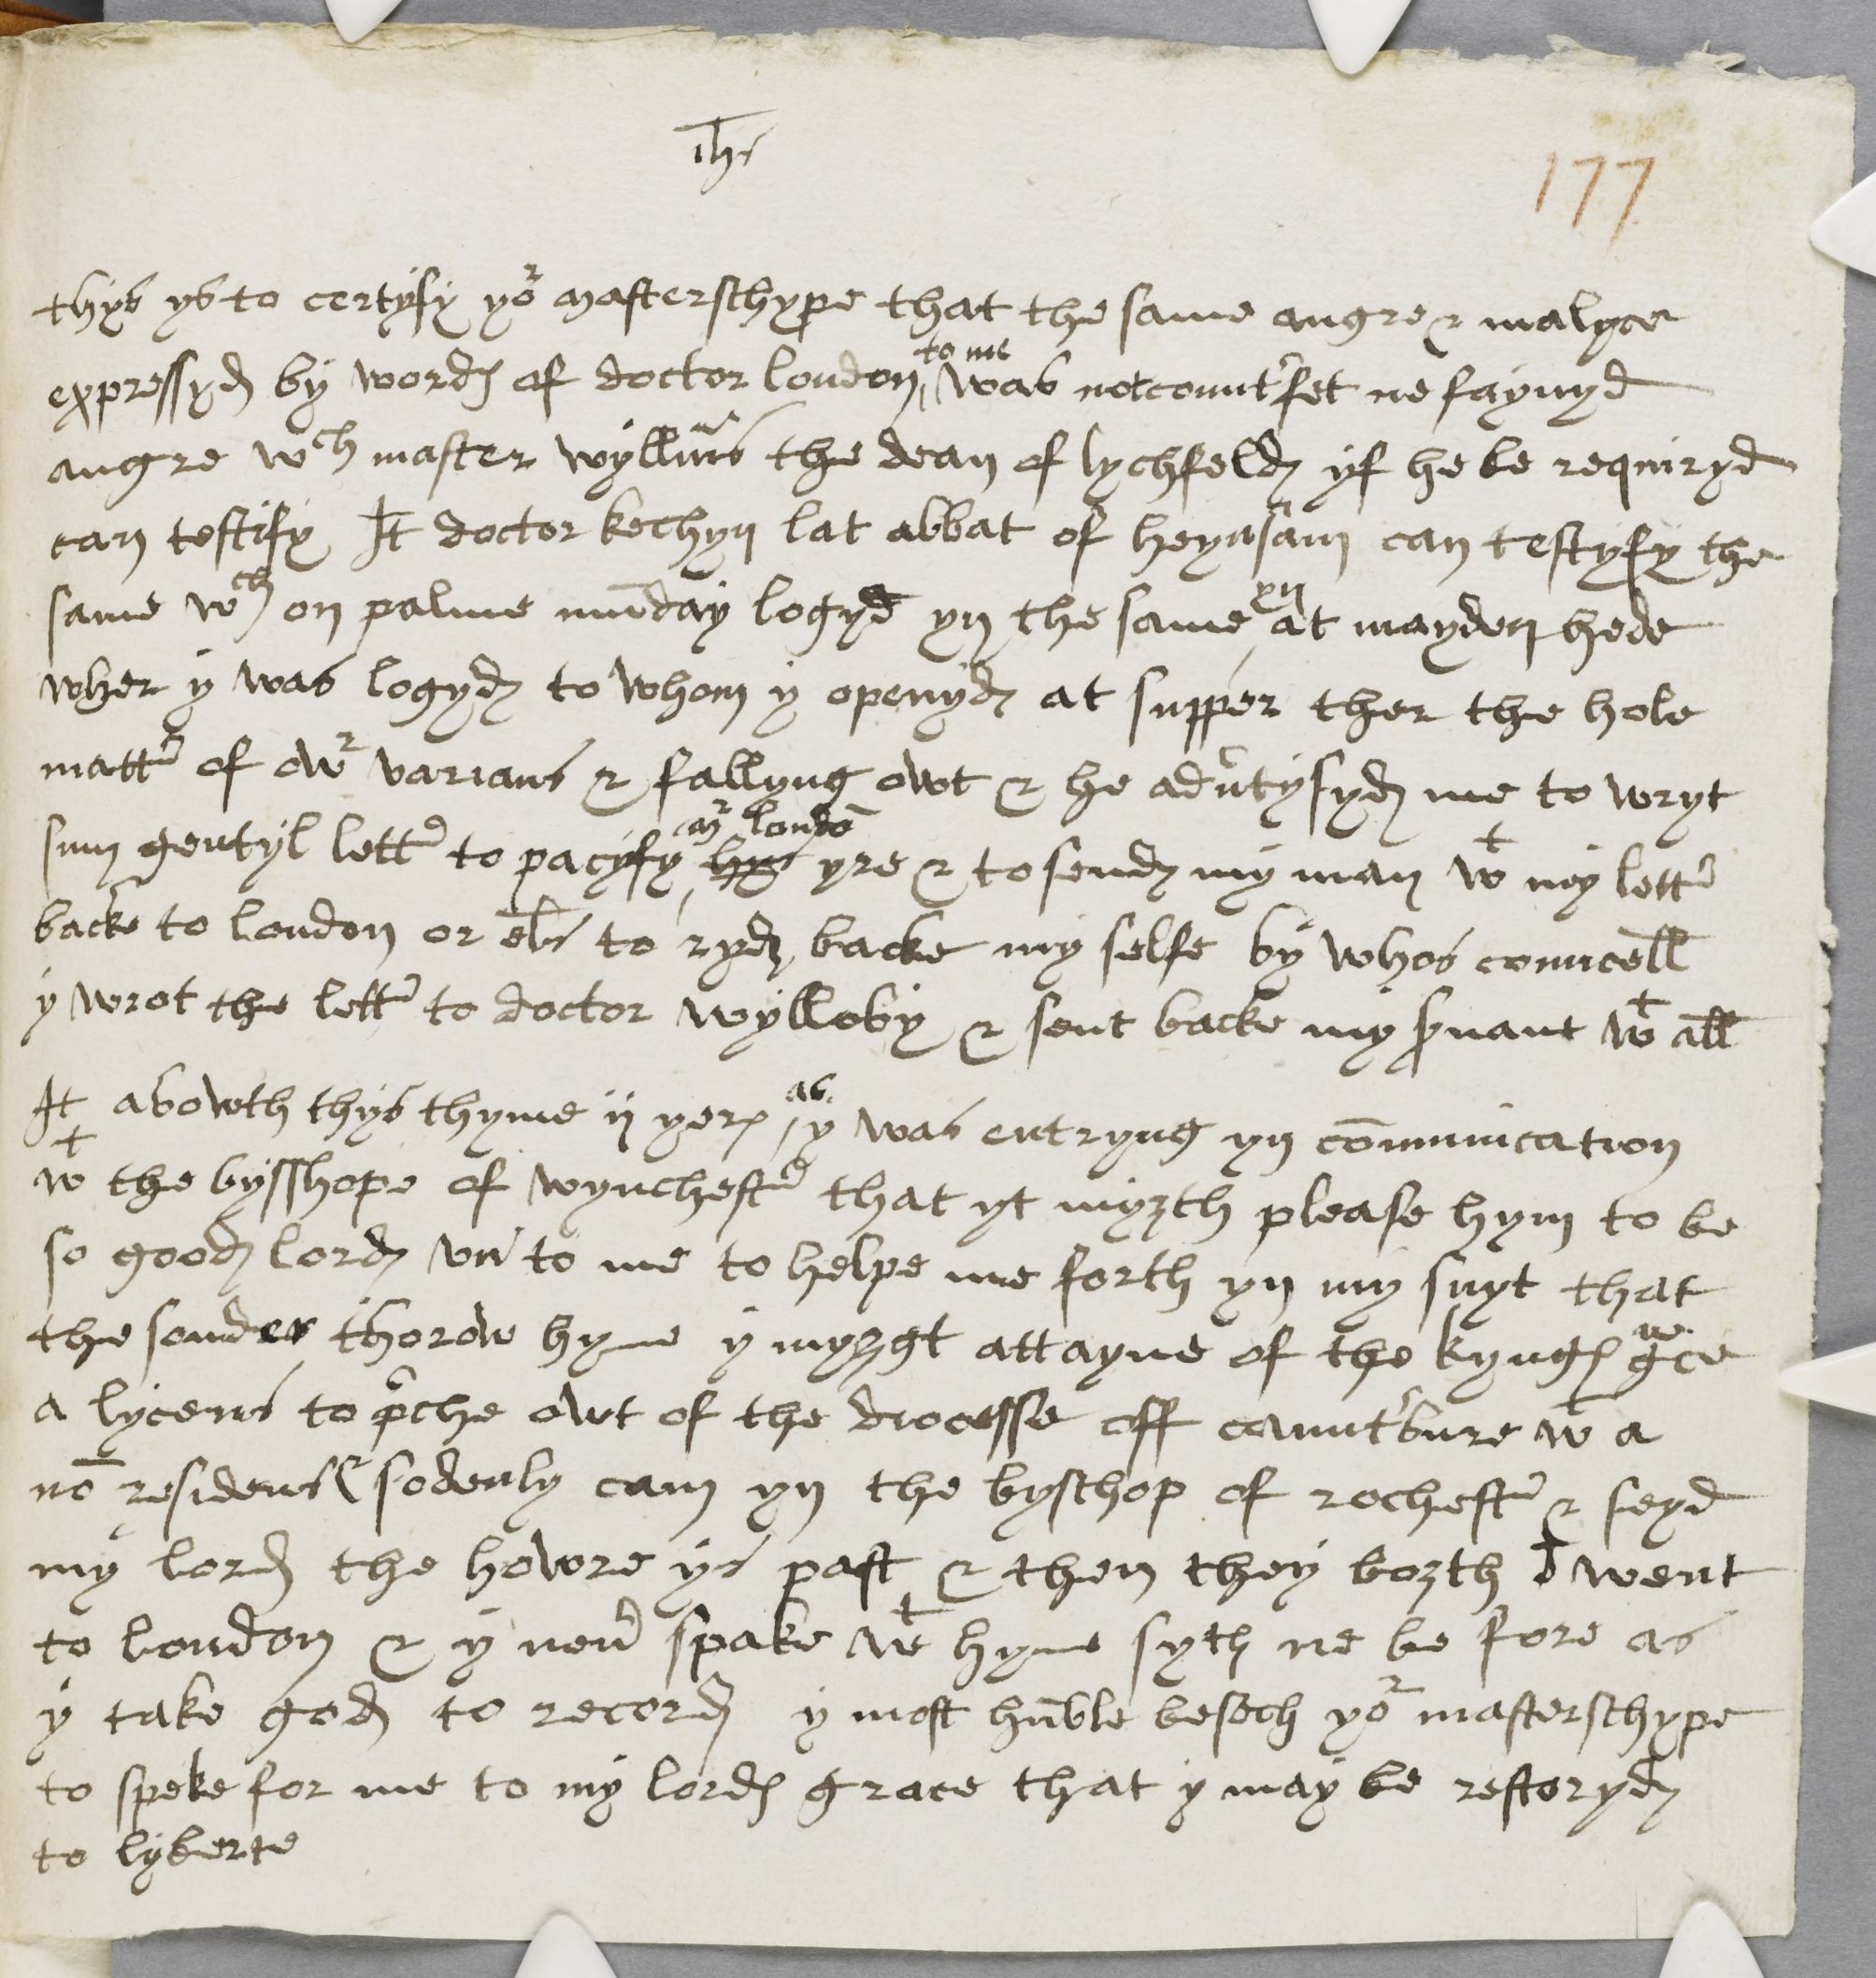 Ihs
177
thys ys to certyfy yor masterschype that the same angre & malyce
expressyd by words of doctor london to me was not countrfet ne faynyd
angre wch master wyllms the dean of lychfeld yf he be requiryd
can testify It doctor kechyn lat abbat of heynsam can testyfy the
same wch on palme mūday logyd yn the same yn at mayden hede
wher y was logyd to whom y openyd at supper ther the hole
mattr of owr varians & fallyng owt & he adutysyd me to wryt
sum gentyl lettr to pacyfy hys mr londō yre & to send my man wt my lettr
backe to london or els to ryd backe my selfe by whos councell
y wrot the lettr to doctor wylloby & sent backe my sruant wt all
It abowth thys thyme ij yers as y was entryng yn cōmunication
wt the bysshope of wynchestr that yt myzth please hym to be
so good lord vn to me to helpe me forth yn my suyt that
the sonder thorow hyme y myzgt attayne of the kyngs gce
a lycens to pche owt of the diocesse off cauntrbure wt a
nō residens sodenly cam yn the byschop of rochestr & seyd
my lord the howre ys past & then they bozth went
to london & y neur spake wt hyme syth ne be fore as
y take god to record y most hūble besech yor masterschype
to speke for me to my lords grace that y may be restoryd
to lyberte